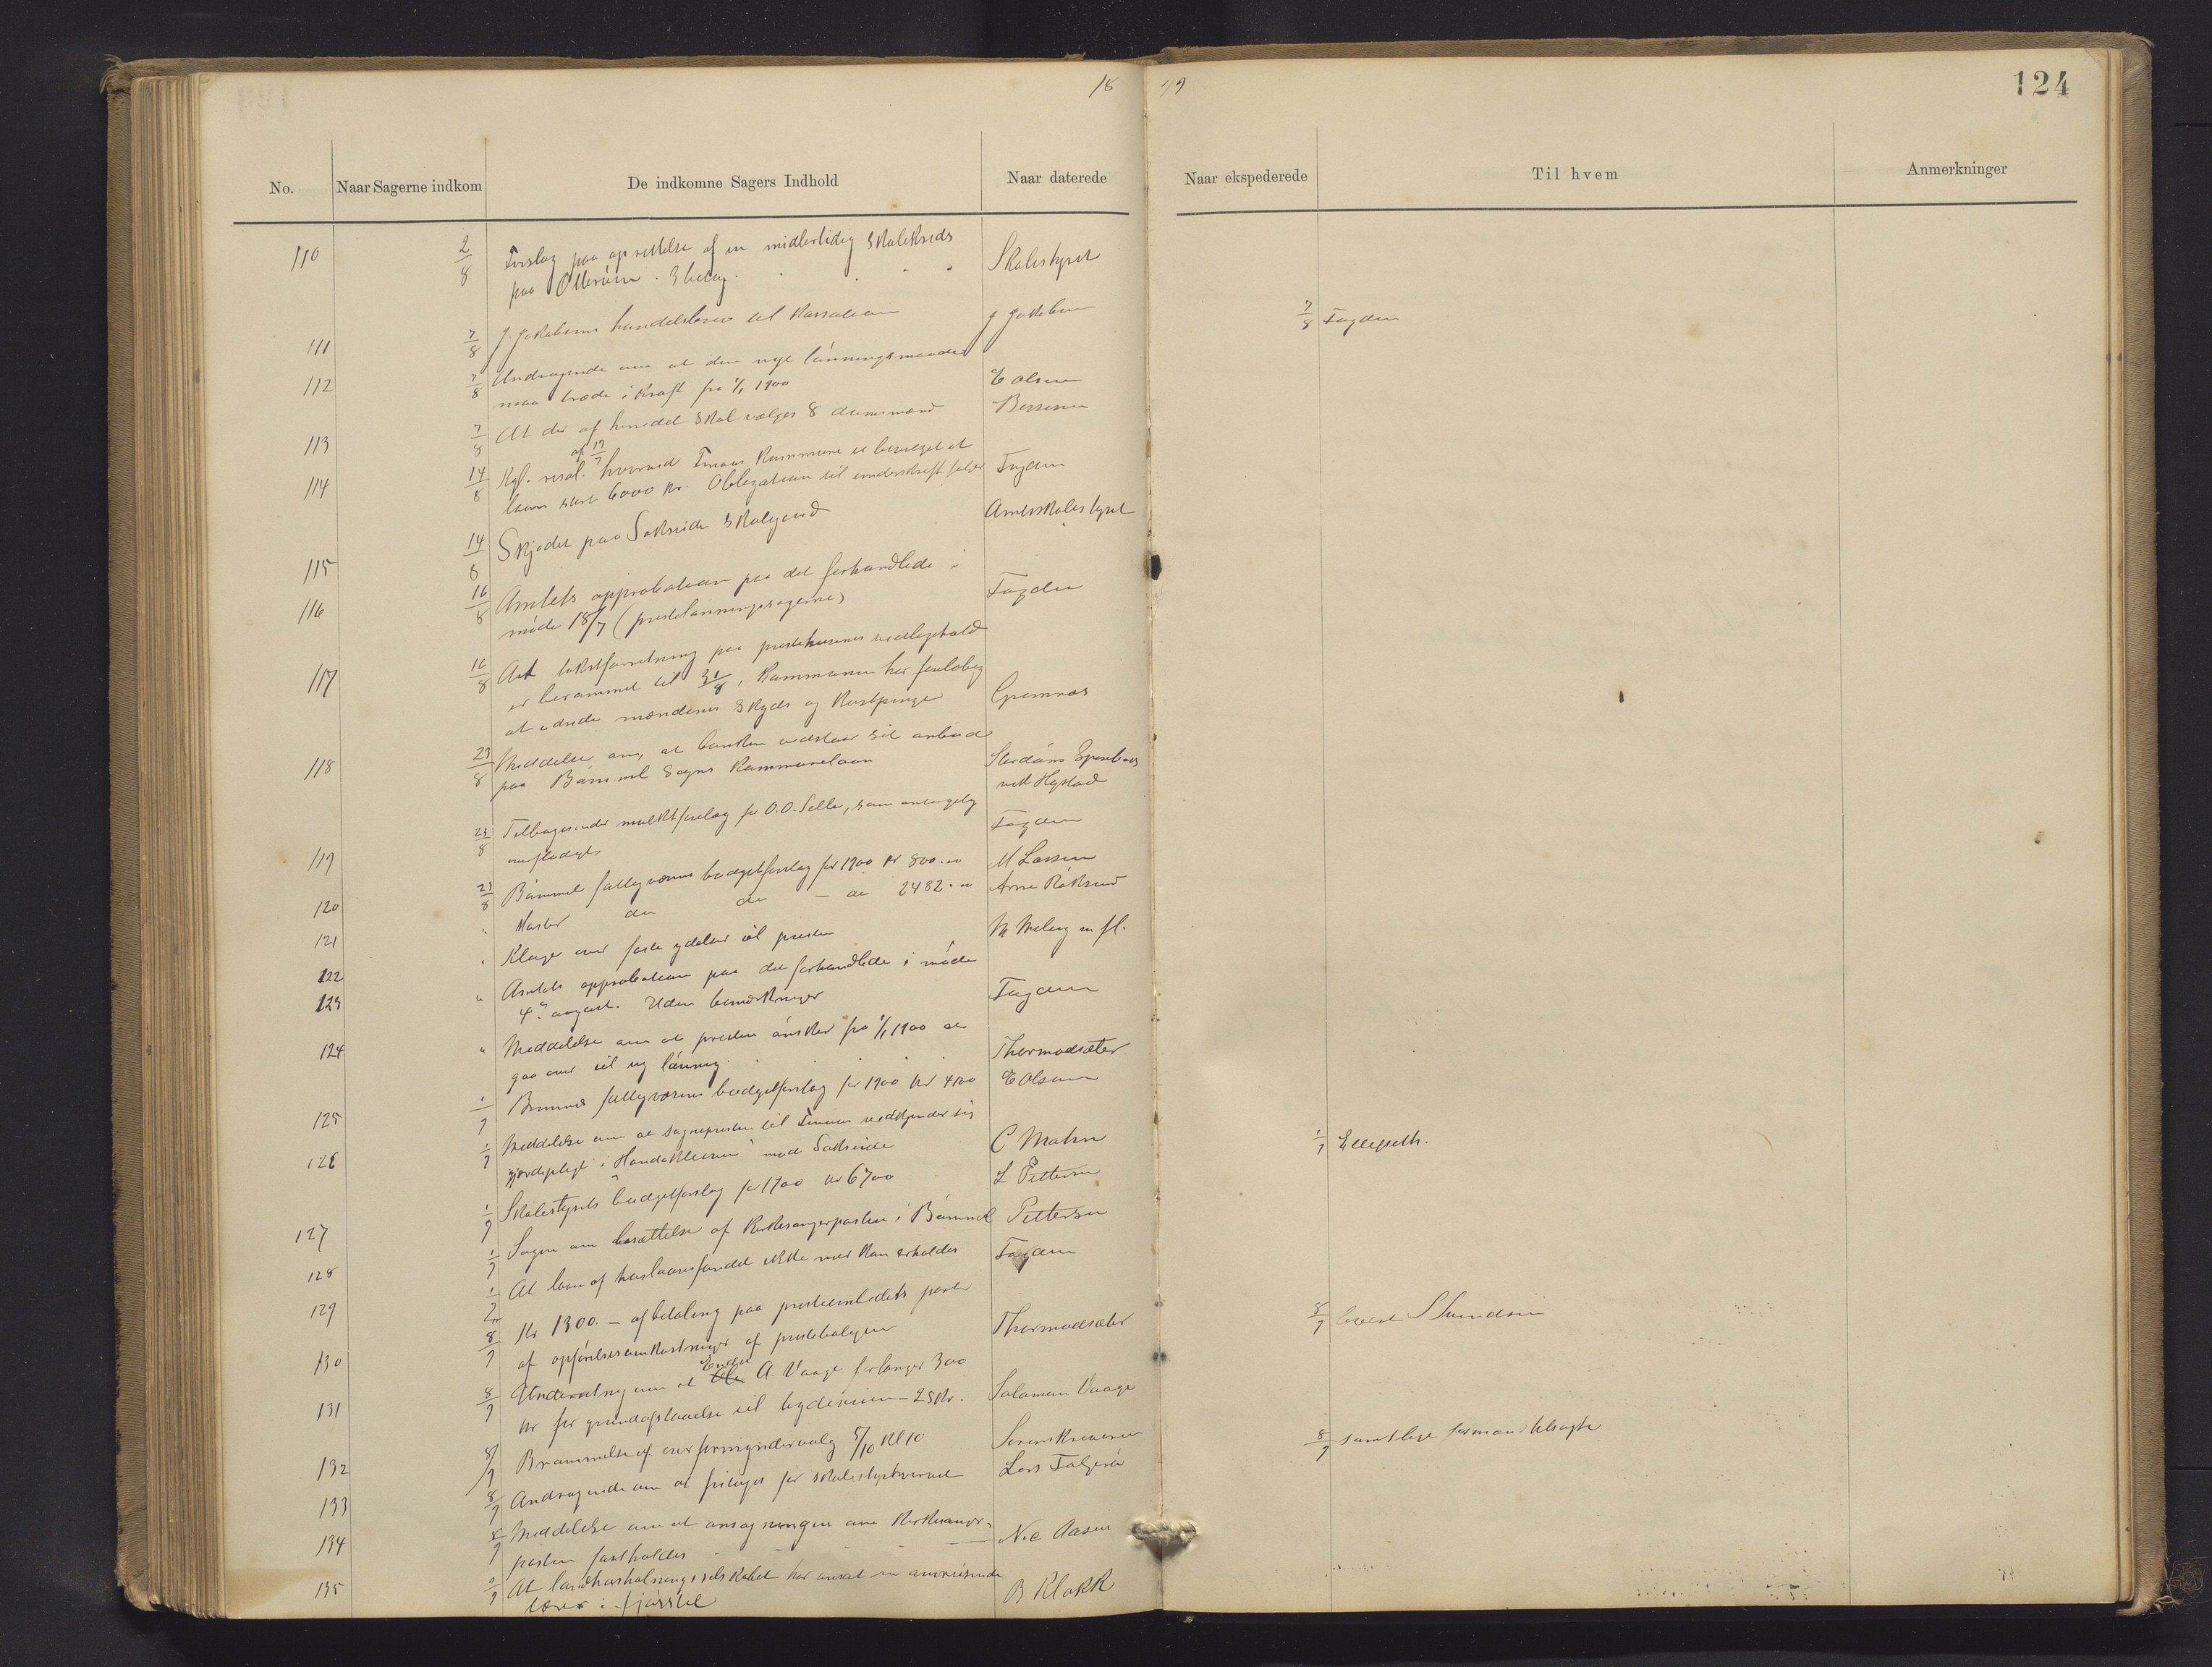 18 99
124
No. Naar Sagerne indkom De indkomne Sagers Indhold Naar daterede Naar ekspederede Til hvem Anmerkninger
110 2/8 Forslag paa oprettelse af en midlertidig skolekreds Skolestyret
paa
111 7/8 J. Jakobsens handelsbrev til J Jakobsen 7/8 Fogden
112 7/8 Andragende om at den nye lønningsmaade
maa træde i kraft fra 1/1 1900 E Olsen
113 7/8 At der af herredet skal vælges 8 domsmænd
af 19/7
114 14/8 Kgl. resol. hvorved Finaas Kommune er bevilget et
laan stort 6000 kr. Obligation til underskrift følger Fogden
115 14/8 Skjødet paa Sakseide skolegaard Amtsskolestyret
116 16/8 Amtets approbation paa det forhandlede i
møde 18/7 (prestelønningssagerne) Fogden
117 16/8 At takstforretning paa prestehusenes vedligehold
er berammet til 31/8, Kommunen har foreløbig
at udrede mændenes skyds og kostpenge Gremnæs
118 23/8 Meddelse om, at banken vedstaar sit anbud
paa Bømmel Sogns Kommunelaan
119 23/8 Tilbagesender mulktforelæg for O.O. Selle, som Fogden
120 23/8 Bømmel fattigvæsens budgetforslag for 1900 kr 800.00 M Larsen
121 " Moster do do - do 2482.00 Arne
122 " Klage over faste ydelser til presten M Meling m fl.
123 " Amtets approbation paa det forhandlede i møde
4. august. Uden bemærkninger Fogden
124 " Meddelelse om at presten ønsker fra 1/1 1900 at
gaa over til ny lønning. Thormodsæter
125 1/9 Bremnes fattigvæsens budgetforslag for 1900 kr 4100 E Olsen
126 1/9 Meddelelse om at sognepresten til Finaas vedkjender sig
gjærdepligt i "Handakleiven" mod Sakseide C Mohn 1/9
127 1/9 Skolestyrets budgetforslag for 1900 kr 6700 L Pettersen
128 1/9 Sagen om besættelse af Kirkesangerposten i Bømmel Pettersen
129 1/9 At laan af huslaansfondet ikke mer kan erholdes Fogden
130 8/9 Kr 1300.- afbetaling paa presteembedets part
af opførelsesomkostninger af presteboligen Thormodsæter 8/9
Endre
131 8/9 Underretning om at A. Vaage forlanger 300
kr for grundafstaaelse til - 25 kr. Salamon Vaage
132 8/9 Brammelse af overformyndervalg 5/10 Kl 10 Sorenskriveren 8/9 samtlige
133 8/9 Andragende om at fritages for skolestyrhvervet Lars Folgerø
134 8/9 Meddelelse om at ansøgningen om Kirkesanger-
posten fastholdes N.C Aasen
135 At landhusholdningsselskabet har ansat en
lærer i fjøsstel B Klokk